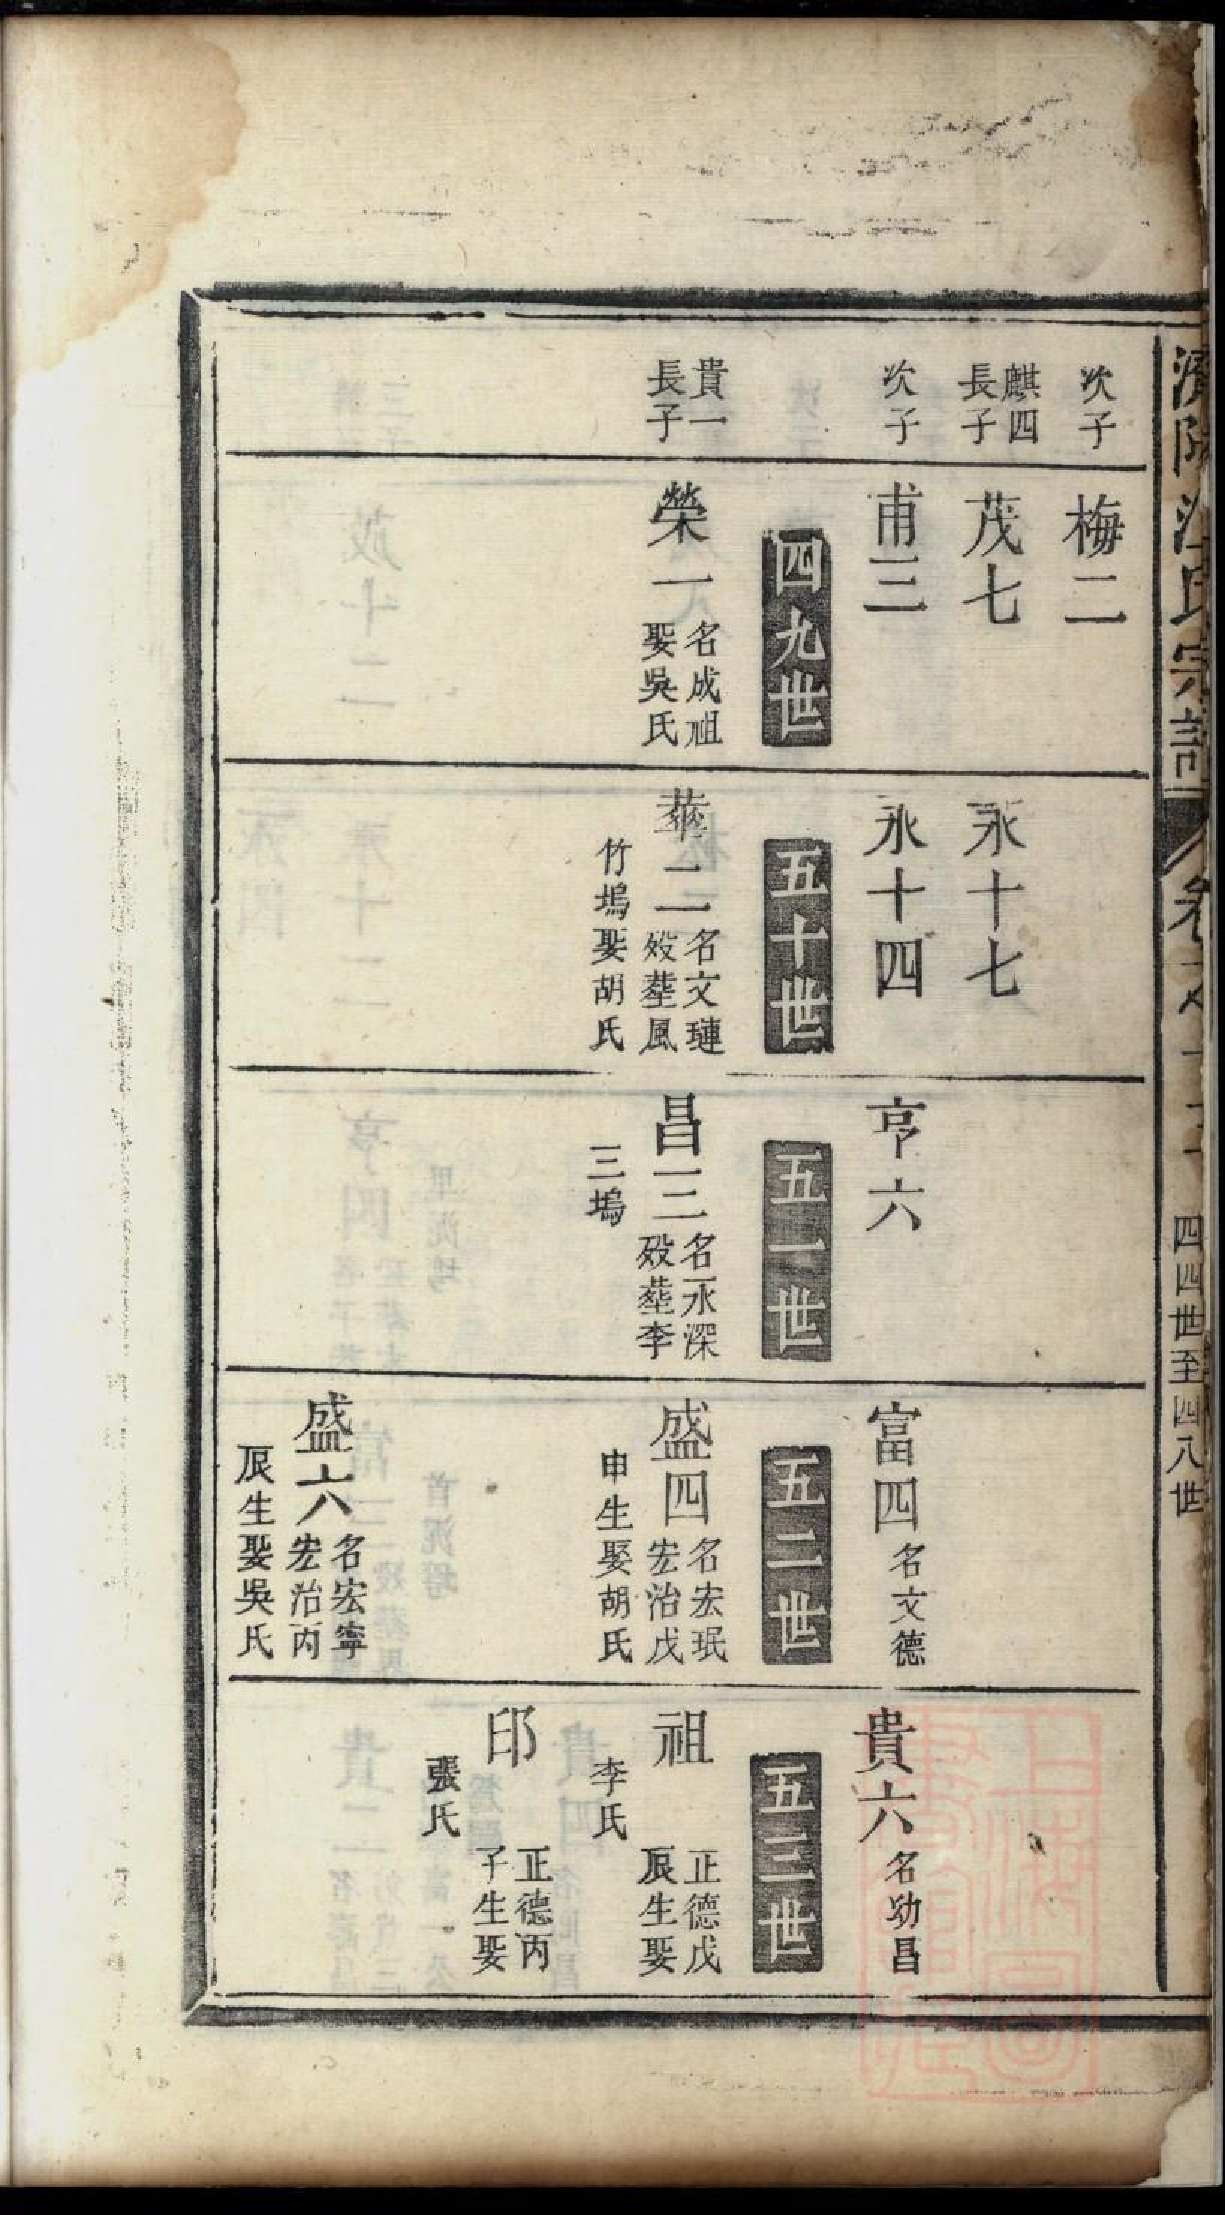 濟陽江氏宗譜
卷之
四四世至四八世
次子
梅二
麒四
長子
茂七
永十七
次子
甫三
永十四
亨六
富四
名文德
貴六
名功昌
四九世
五十世
五一世
五二世
五三世
貴一
長子
榮一
名成祖
娶吳氏
華二二
名文璉
歿塟風
竹塢娶胡氏
昌一二
名永深
歿塟李
三塢
盛四
名宏珉
宏治戊
申生娶胡氏
祖
正德戊
辰生娶
李氏
印
正德丙
子生娶
張氏
盛六
名宏寧
宏治丙
辰生娶吳氏